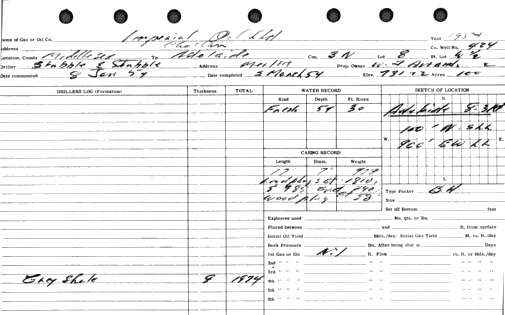 Name of Gas or Oil Co. Imperial Oil Ltd Year 1954
Address Chatham Co. Well No. 424
Location, County Middlesex Tp. Adelaide Con. 3 N Lot 8 Pt. Lot
Driller Stubble & Stubble Address Merlin Prop. Owner
Date commenced 8 Jan 54 Date completed 2 March 54 Elev. 731 Acres 100
DRILLERS LOG (Formation) Thickness TOTAL WATER RECORD SKETCH OF LOCATION
Kind Depth Ft. Rises N.
Fresh 54 30 Adelaide 8-3N
100' N-SLL
W. 900' EWLL E.
CASING RECORD
Length Diam. Weight
17 7"
Lead plug set 1810,
Wood plug
Type Packer BH
Size
Set off Bottom feet
Explosives used No. qts. or lbs.
Placed between and ft. from surface
Initial Oil Yield bbls./day. Initial Gas Yield M. cu. ft./day
Rock Pressure lbs. After being shut in Days
1st Gas or Oil Nil ft. Flow cu. ft. or bbls./day
2nd " " " " " " "
3rd " " " " " " "
Grey Shale 8 1874 4th " " " " " " "
5th " " " " " " "
6th " " " " " " "